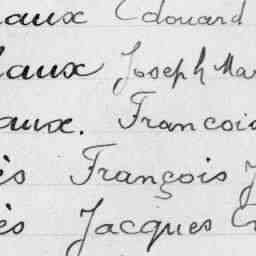 aux Edouard
aux Joseph Ma
aux. Francois
ès François J
ès Jacques